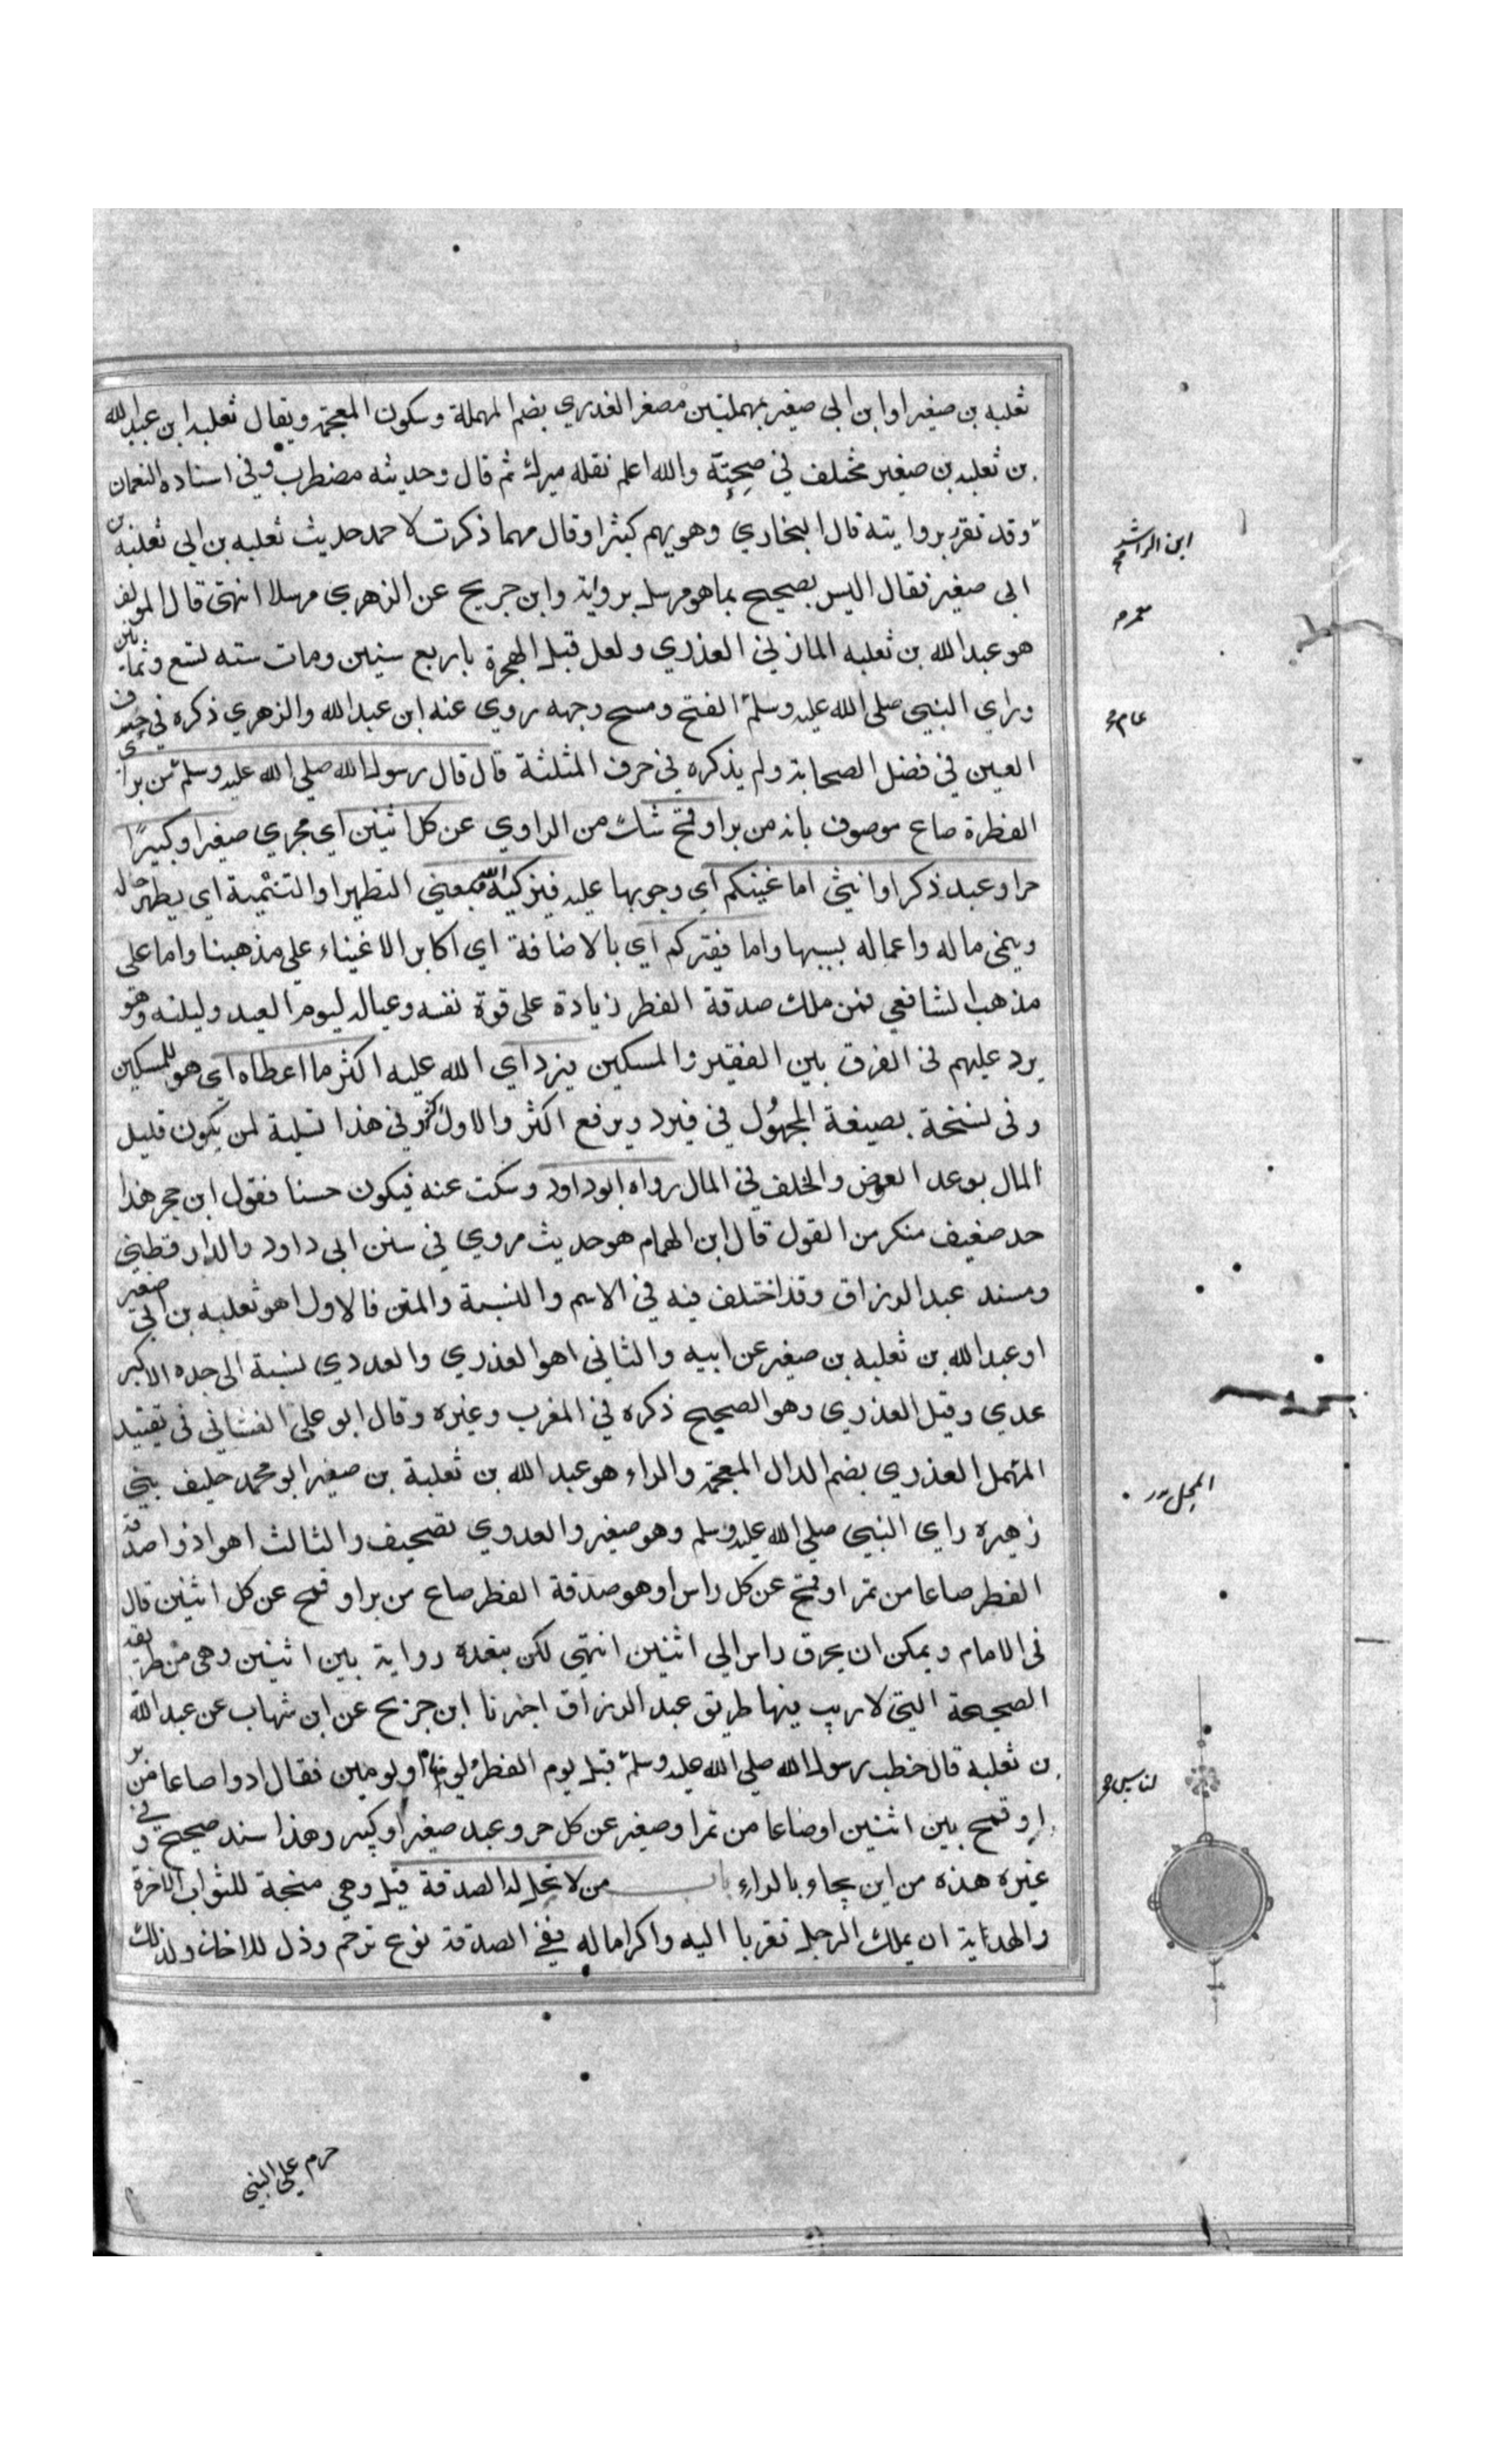 ثعلبه بن صغير او ابن ابى صغير بمهملتين مصغر العذري بضم المهملة وسكون المعجمة ويقال ثعلبه ابن عبد الله
بن ثعلبه بن صغير مختلف في صحبته والله اعلم نقله ميرك ثم قال وحديثه مضطرب وفي اسناده النعمان
وقد تفرد بروايته قال البخاري وهو يهم كثيرا وقال مهما ذكرت لاحمد حديث ثعلبه بن ابي ثعلبه بن
ابى صغير فقال اليس بصحيح بما هو مرسل برواية وابن جريج عن الزهري مرسلا انتهى قال المولف
هو عبد الله بن ثعلبه المازني العذري ولعل قبل الهجرة باربع سنين ومات سنه تسع وثمانين
وراي النبي صلى الله عليه وسلم الفتح ومسح وجهه روي عنه ابن عبد الله والزهري ذكره في حرف
العين في فضل الصحابة ولم يذكره في حرف المثلثة قال قال رسول الله صلي الله عليه وسلم من بر اي
الفطرة صاع موصوف بانه من بر او قمح شك من الراوي عن كل اثنين اي مجري صغيرا وكبيرا
حر او عبد ذكر او انثي اما غنيكم اي وجوبها عليه فيزكيه الله بمعني التطهير او التنمية اي يطهر حاله
وينمى ماله واعماله بسببها واما فقيركم اي بالاضافة اي اكابر الاغنياء علي مذهبنا واما على
مذهب الشافعي فمن ملك صدقة الفطر زيادة على قوة نفسه وعياله ليوم العيد وليلته وهو
يرد عليهم في الفرق بين الفقير والمسكين فيرد اي الله عليه اكثر ما اعطاه اي هو للمسكين
وفى نسخة بصيغة المجهول في فيرد ويرفع اكثر والاول اكثر وفي هذا تسلية لمن يكون قليل
المال بوعد العوض والخلف في المال رواه ابو داود وسكت عنه فيكون حسنا فقول ابن حجر هذا
حد ضعيف منكر من القول قال ابن الهمام هو حديث مروي في سنن ابى داود والدارقطني
ومسند عبد الرزاق وقد اختلف فيه في الاسم والنسبة والمتن فالاول اهو ثعلبه بن ابي صغير
او عبد الله بن ثعلبه بن صغير عن ابيه والثاني اهو العذري والعددي نسبة الى جده الاكبر
عدي وقيل العذري وهو الصحيح ذكره في المغرب وغيره وقال ابو على الغشانى فى تقييد
المهمل العذري بضم الدال المعجمة والراء هو عبد الله بن ثعلبة بن صغير ابو محمد حليف بني
زهيره راي النبي صلي الله عليه وسلم وهو صغير والعدوي تصحيف والثالث اهو اذوا صدقة
الفطر صاعا من تمر او قمح عن كل راس او هو صدقة الفطر صاع من بر او قمح عن كل اثنين قال
فى الامام ويمكن ان يحرف راس الي اثنين انتهى لكن ببعده رواية بين اثنين وهى من طريقه
الصحيحة التى لا ريب فيها طريق عبد الرزاق اخبرنا ابن جريج عن ابن شهاب عن عبد الله
بن ثعلبة قال خطب رسول الله صلي الله عليه وسلم قبل يوم الفطر بيوم او يومين فقال ادوا صاعا من بر
او قمح بين اثنين او صاعا من تمر او صغير عن كل حر وعبد صغير او كبير وهذا سند صحيح وفي
غيره هذه من اين يجاوبالراء باب من لا تحل له الصدقة قيل وهي منحة للثواب الاخرة
والهداية ان يملك الرجل تقربا اليه واكراما له ففي الصدقة نوع ترحم وذل للاخذ ولذلك
ابن الراشد
معمر
عام
المحل
لناس
حرم على النبى